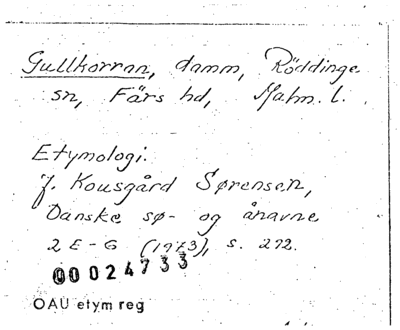 Gullkorran, damm, Röddinge
sn, Färs hd, Malm. l.
Etymologi.
J. Kousgård Sørensen,
Danske sø- og ånavne
2 E-G (1973), s. 272.
00024733
OAU etym reg